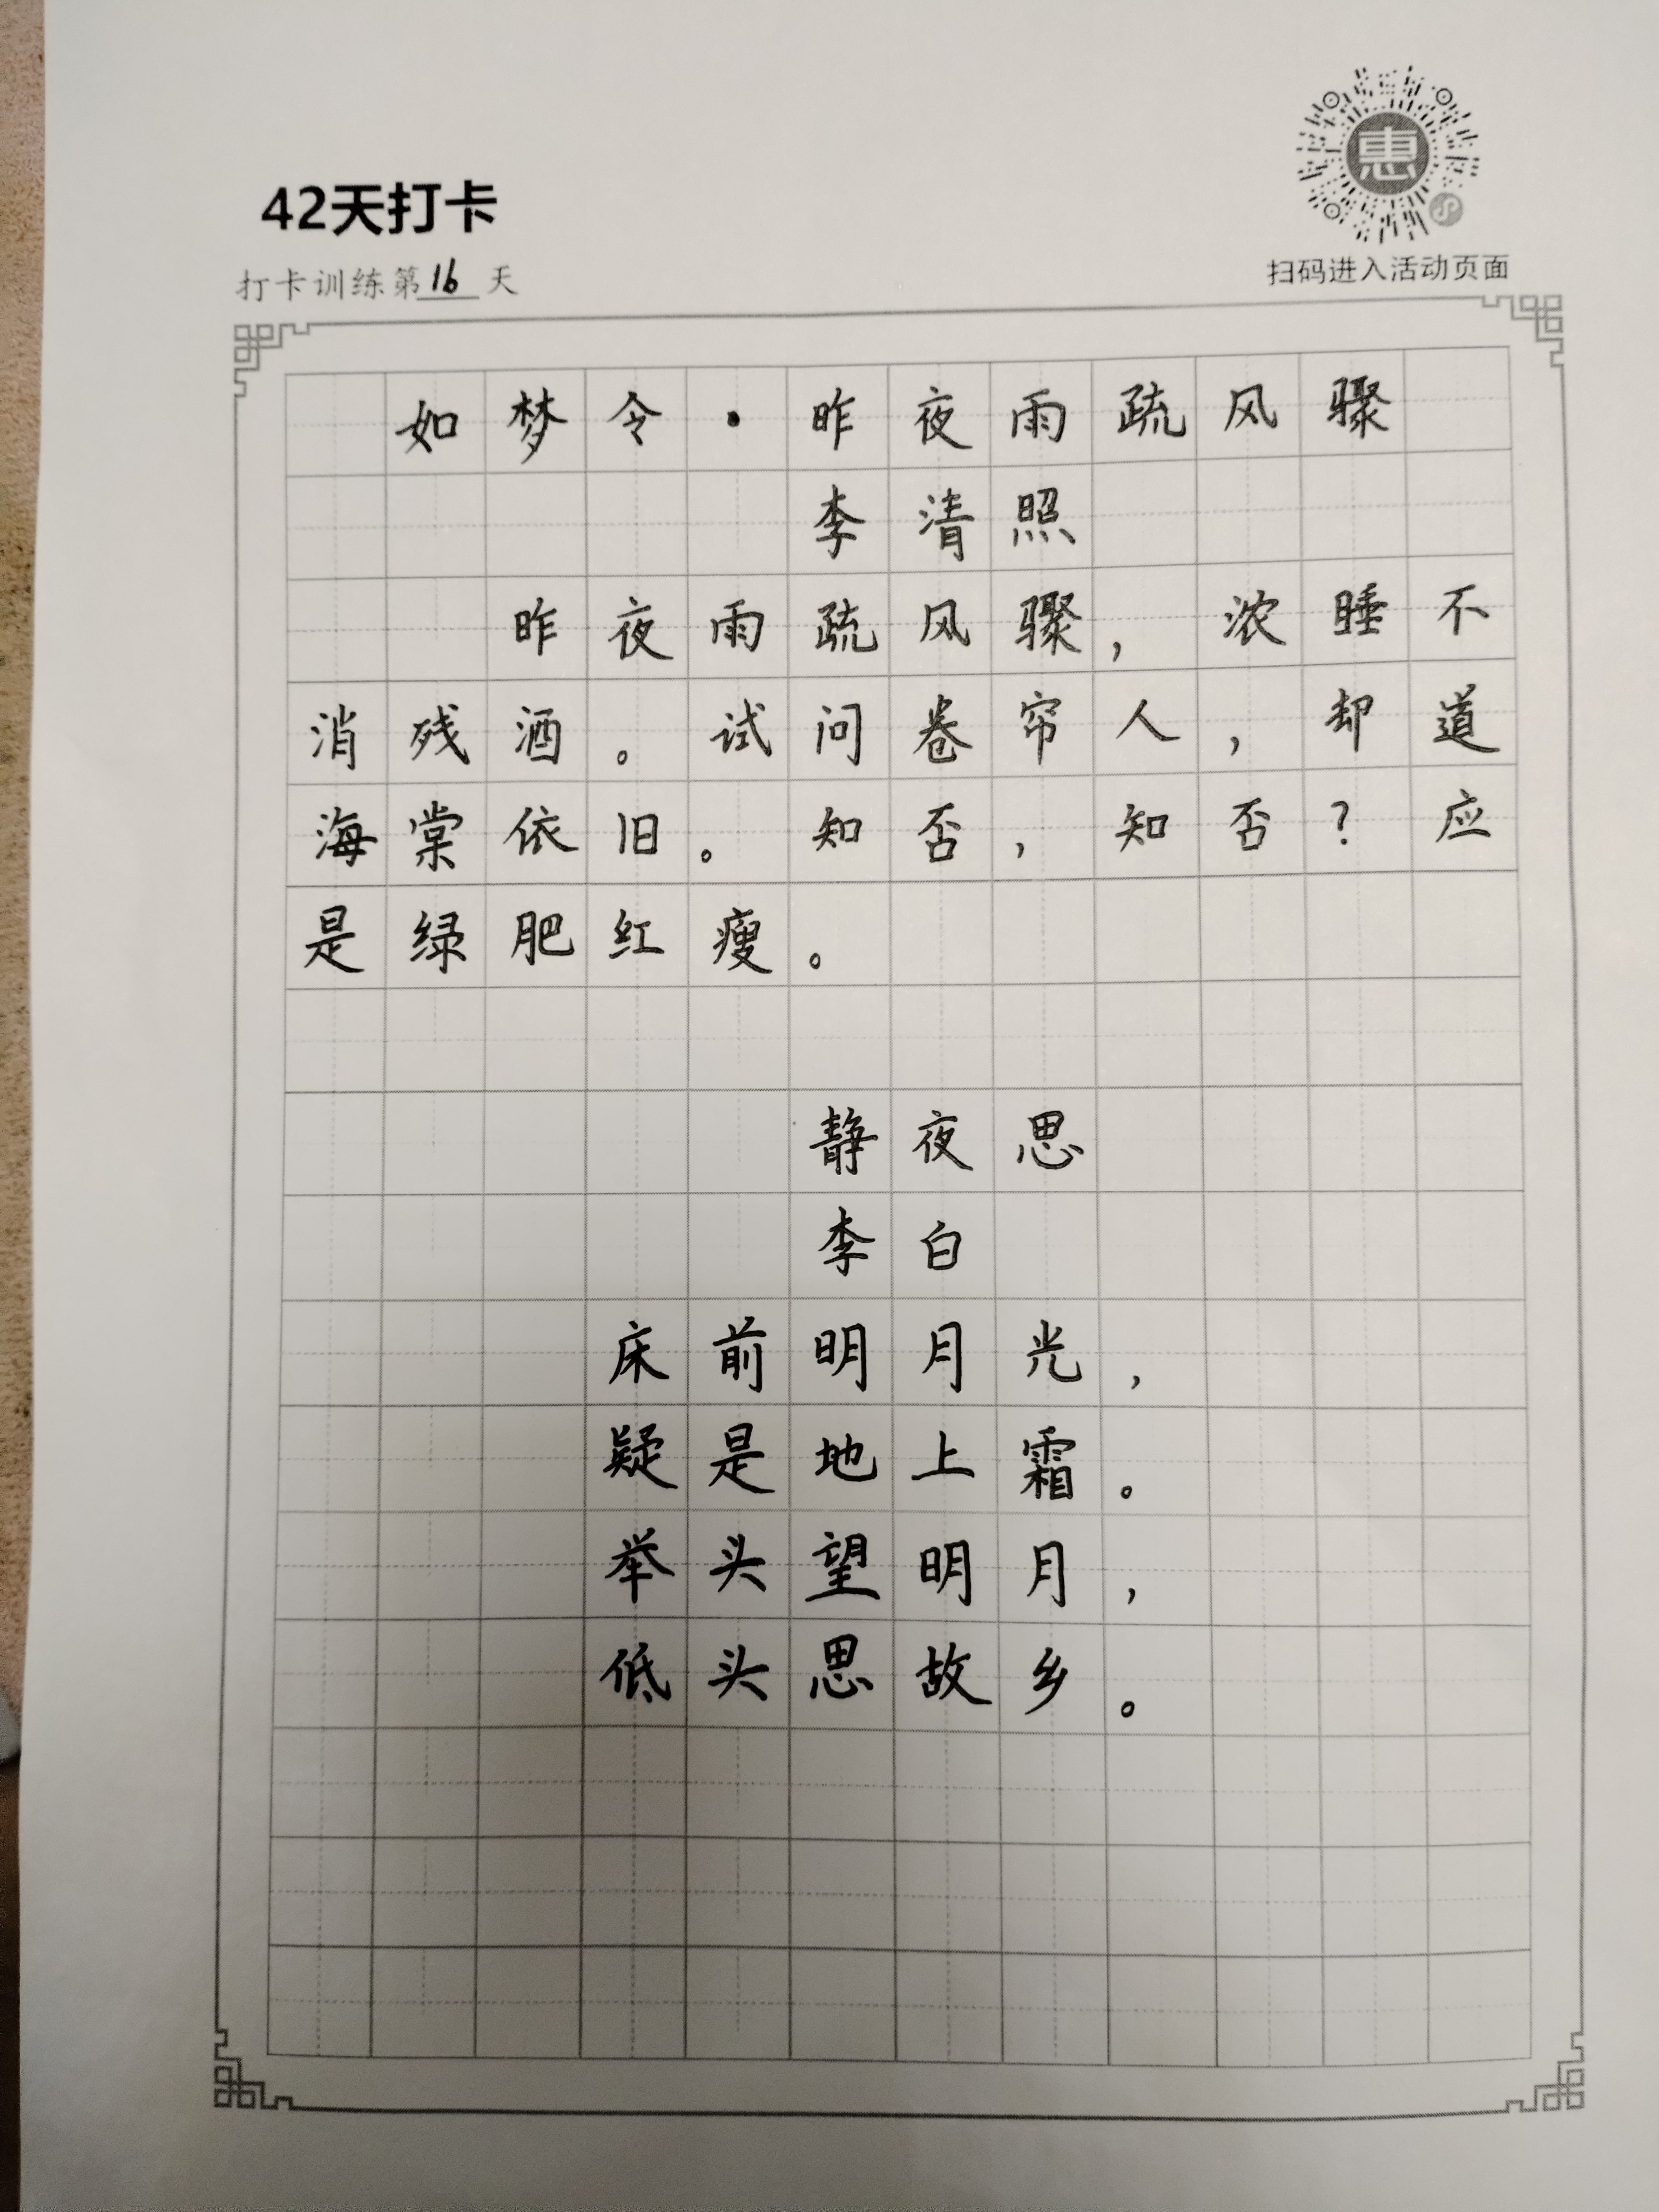 惠
42天打卡
打卡训练第16天
扫码进入活动页面
如梦令·昨夜雨疏风骤
李清照
昨夜雨疏风骤，浓睡不
消残酒。试问卷帘人，却道
海棠依旧。知否，知否？应
是绿肥红瘦。
静夜思
李白
床前明月光，
疑是地上霜。
举头望明月，
低头思故乡。